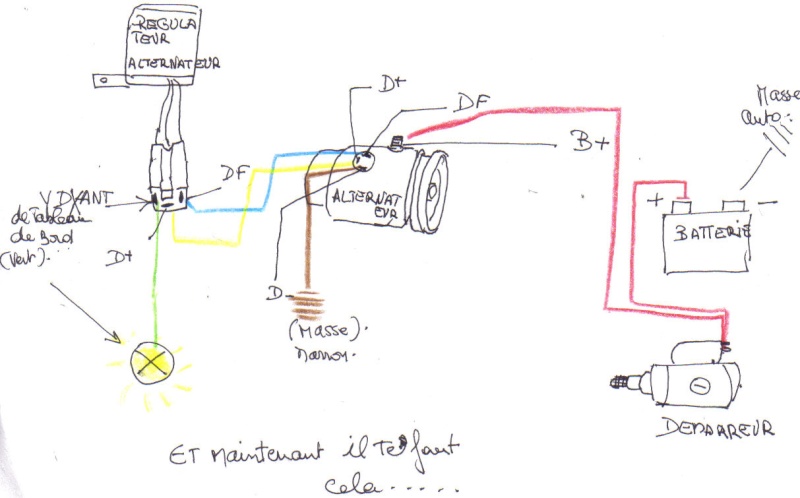 REGULA
TEUR
ALTERNATEUR
D+
DF
B+
Masse
auto.
DF
VOYANT
de Tableau
de Bord
(Vert)....
D+
ALTERNAT
EUR
D-
(Masse).
marron.
+
-
BATTERIE
DEMARREUR
ET maintenant il Te faut
cela......